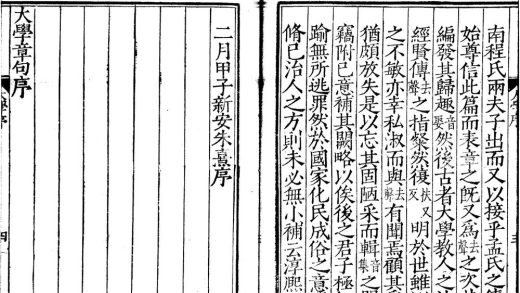 南程氏兩夫子出而又以接乎孟氏之
始尊信此篇而表章之旣又爲去聲之次
編發其歸趣音娶然後古者大學教人之
經賢傳去聲之指粲然復扶又反明於世雖
之不敏亦幸私淑而與去聲有聞焉顧其
猶頗放失是以忘其固陋采而輯音集之
竊附己意補其闕略以俟後之君子極
踰無所逃罪然於國家化民成俗之意
脩己治人之方則未必無小補云淳熙
二月甲子新安朱熹序
大學章句序